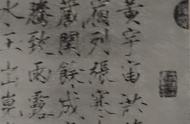 黃宇宙洪
宿列張寒
藏閏餘成
騰致雨露
水玉出崑